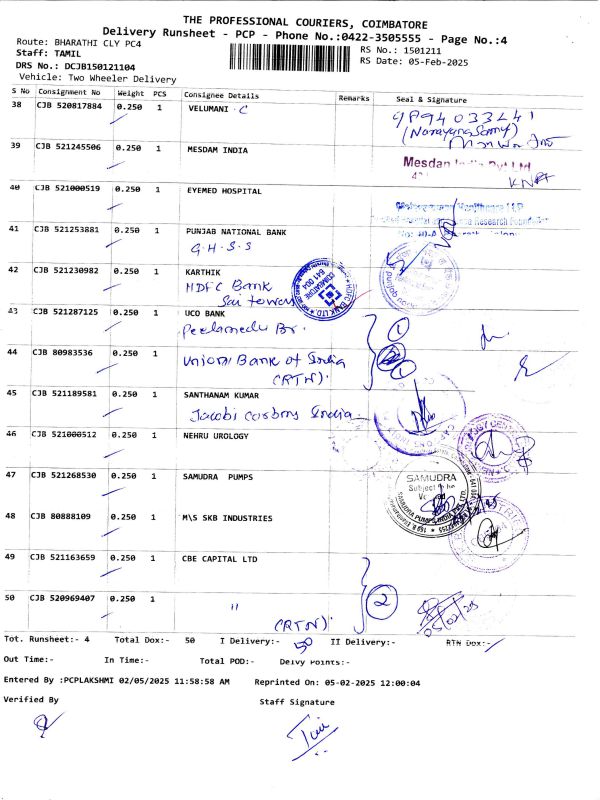 THE PROFESSIONAL COURIERS, COIMBATORE
Delivery Runsheet - PCP - Phone No.:0422-3505555 - Page No.:4
Route: BHARATHI CLY PC4
RS No.: 1501211
Staff: TAMIL
RS Date: 05-Feb-2025
DRS No.: DCJB150121104
Vehicle: Two Wheeler Delivery
S No Consignment No Weight PCS Consignee Details Remarks Seal & Signature
38 CJB 520817884 0.250 1 VELUMANI . C
9894033441
39 CJB 521245506 0.250 1 MESDAM INDIA
Mesdan India Pvt Ltd
40 CJB 521000519 0.250 1 EYEMED HOSPITAL
41 CJB 521253881 0.250 1 PUNJAB NATIONAL BANK
G.H.S.S
42 CJB 521230982 0.250 1 KARTHIK
HDFC Bank
Sai town
HDFC BANK LTD
COIMBATORE
641 004
43 CJB 521287125 0.250 1 UCO BANK
Peelamedu Br.
1
44 CJB 80983536 0.250 1
Union Bank of India
(RTN).
1
45 CJB 521189581 0.250 1 SANTHANAM KUMAR
Jacobi carbons India
46 CJB 521000512 0.250 1 NEHRU UROLOGY
47 CJB 521268530 0.250 1 SAMUDRA PUMPS
SAMUDRA
Subject to be
48 CJB 80888109 0.250 1 M\S SKB INDUSTRIES
49 CJB 521163659 0.250 1 CBE CAPITAL LTD
50 CJB 520969407 0.250 1 "
(RTN).
2
05/02/25
Tot. Runsheet:- 4 Total Dox:- 50 I Delivery:- 50 II Delivery:- RTN Dox:-
Out Time:- In Time:- Total POD:- Delvy Points:-
Entered By :PCPLAKSHMI 02/05/2025 11:58:58 AM Reprinted On: 05-02-2025 12:00:04
Verified By Staff Signature